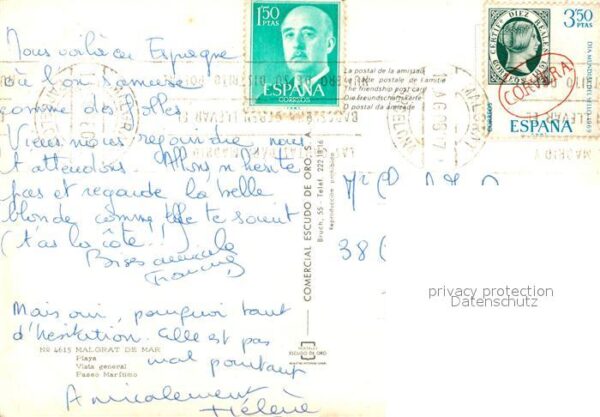 Nous voilà en Espagne
où l'on s'amuse
comme des folles
Viens nous rejoindre nous
t'attendons. Allons n'hésite
pas et regarde la belle
blonde comme elle te sourit
(t'as la côte!!)
Bises amicales
Francine
Mais oui, pourquoi tant
d'hésitation. Elle est pas
mal pourtant
Amicalement
Hélène
Nº 4615 MALGRAT DE MAR
Playa
Vista general
Paseo Marítimo
1'50
PTAS
ESPAÑA
CORREOS
La postal de la amistad
La carte postale de l'amitié
The friendship post card
Die Freundschaftskarte
O postal da amizade
COMERCIAL ESCUDO DE ORO, S.A.
Bruch, 55 - Telef. 222 18 16
Reproducción prohibida
ESCUDO DE ORO
CERTDO DIEZ REALES
CORREOS 1850
3'50
PTAS
DIA MUNDIAL DEL SELLO 1969
CORVERA
CORREOS
ESPAÑA
38
privacy protection
Datenschutz